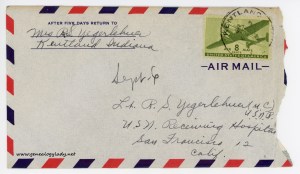 AFTER FIVE DAYS RETURN TO
Mrs. Yegerlehner
Kentland Indiana
KENTLAND
8
UNITED STATES OF AMERICA
AIR MAIL
Sept 6
Lt. R. S. Yegerlehner M.C.
U.S.N.R.
U.S.N. Receiving Hospital
San Francisco 12
Calif.
www.genealogylady.net